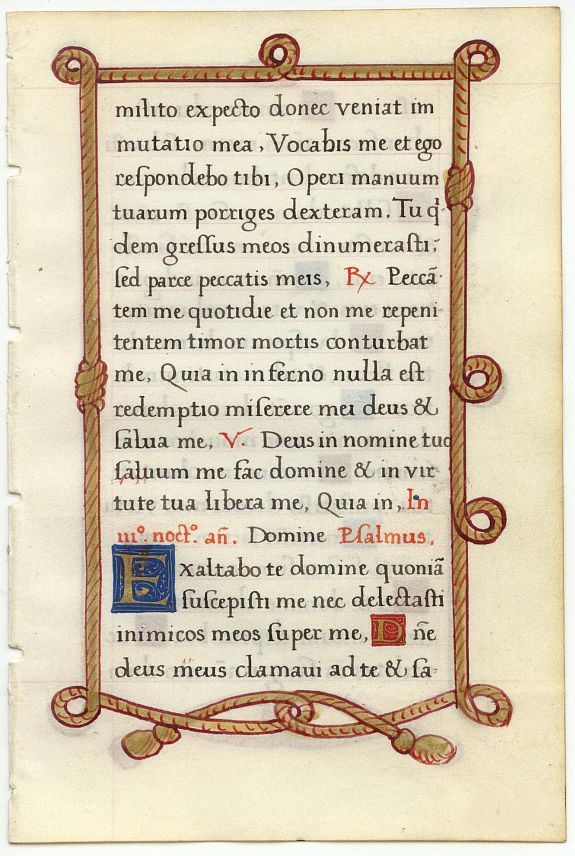 milito expecto donec veniat im
mutatio mea, Vocabis me et ego
reſpondebo tibi, Operi manuum
tuarum porriges dexteram. Tu q̃
dem greſſus meos dinumeraſti;
ſed parce peccatis meis, ℞ Peccã
tem me quotidie et non me repeni
tentem timor mortis conturbat
me, Quia in inferno nulla eſt
redemptio miſerere mei deus &
ſalua me, V. Deus in nomine tuo
ſaluum me fac domine & in vir
tute tua libera me, Quia in, In
iii°. noct°. añ. Domine Pſalmus.
Exaltabo te domine quoniã
ſuſcepiſti me nec delectaſti
inimicos meos ſuper me, Dñe
deus meus clamaui ad te & ſa-